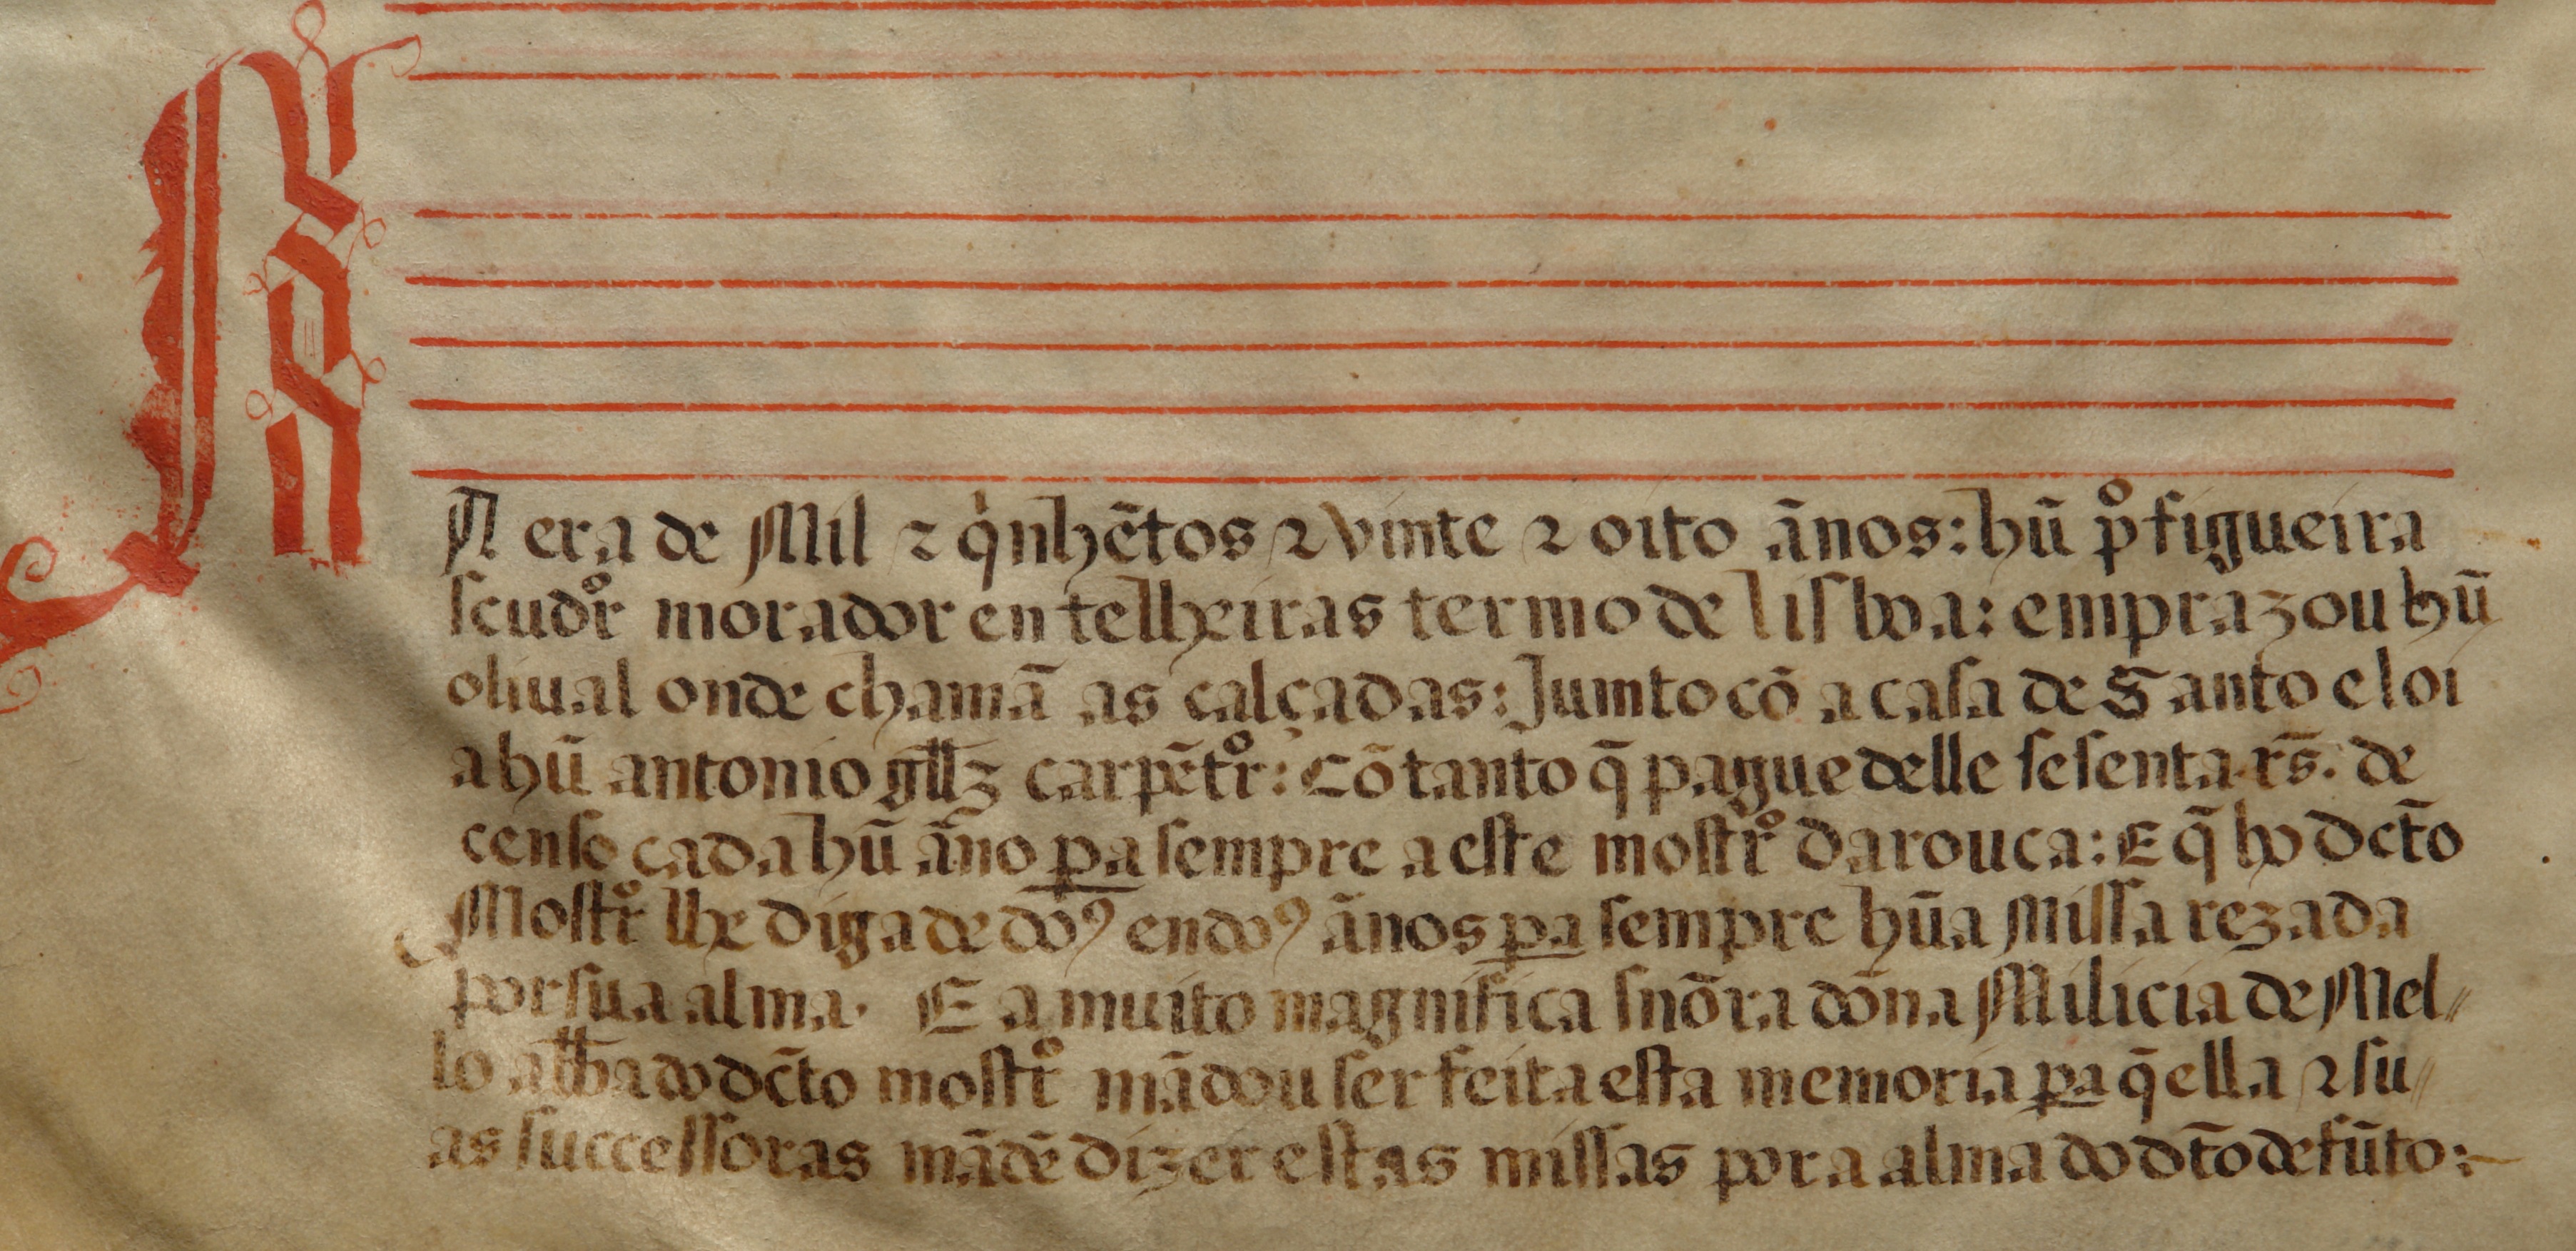 N era de Mil ⁊ qⁱnhētos ⁊ vinte ⁊ oito ānos: hũ pº figueira
scudrº morador en telheiras termo de lisboa: emprazou hũ
oliual onde chamā as calçadas: Jumto cō a casa de Santo eloi
a hũ antonio gllz carpētrº: Cō tanto q̄ pague delle sesenta rs̄. de
censo cada hũ āno pa sempre a este mostrº darouca: E q̄ ho dc̄to
Mostrº lhe diga de doꝰ en doꝰ ānos pa sempre hũa Missa rezada
por sua alma. E a muito magnifica snōra dōna Milicia de Mel//
lo abba do dc̄to mostrº mādou ser feita esta memoria pa q̄ ella ⁊ su//
as successoras mādē dizer estas missas por a alma do dt̄o defūto:~